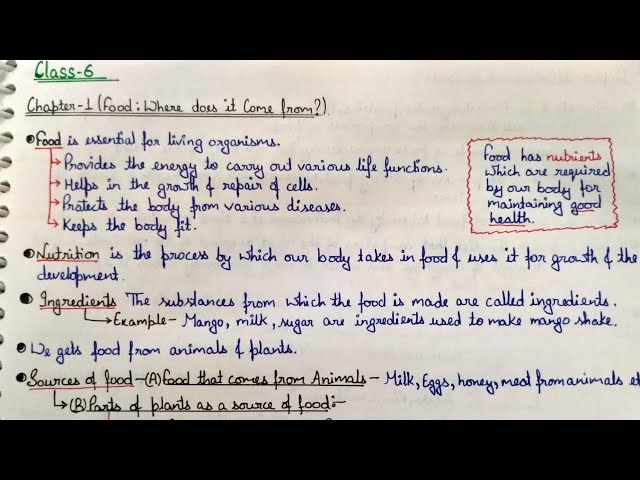 Class-6
Chapter-1 (Food: Where does it Come from?)
Food is essential for living organisms.
Provides the energy to carry out various life functions.
Helps in the growth & repair of cells.
Protects the body from various diseases.
Keeps the body fit.
Food has nutrients
which are required
by our body for
maintaining good
health.
Nutrition is the process by which our body takes in food & uses it for growth & the
development.
Ingredients The substances from which the food is made are called ingredients.
Example- Mango, milk, sugar are ingredients used to make mango shake.
We gets food from animals & plants.
Sources of food-(A) Food that comes from Animals - Milk, Eggs, honey, meat from animals et
(B) Parts of plants as a source of food:-